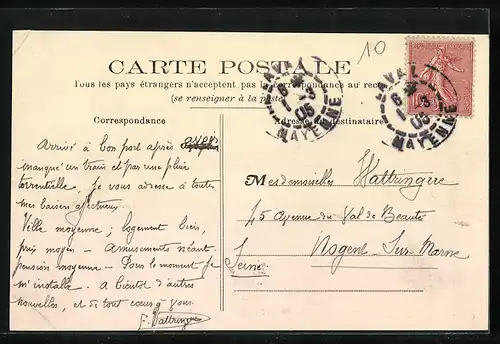 10
CARTE POSTALE
Tous les pays étrangers n'acceptent pas la correspondance au recto
(se renseigner à la poste)
LAVAL
6
1 -3
05
MAYENNE
LAVAL
6
1 -3
05
MAYENNE
Correspondance
Adresse du destinataire
Arrivé à bon port après avoir
manqué un train et par une pluie
torrentielle, je vous adresse à toutes
mes baisers affectueux.
Ville moyenne; logement bien,
prix moyen - Amusements néant.
pension moyenne - Pour le moment je
m'installe. A bientôt d'autres
nouvelles, et de tout cœur à vous.
F. Wattringue
Mesdemoiselles Wattringue
45 Avenue du Val de Beauté
Nogent-Sur-Marne
Seine